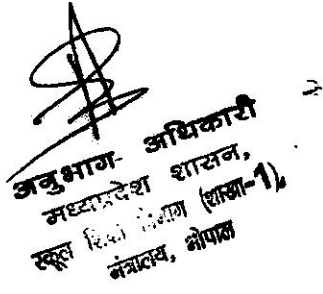 अनुभाग- अधिकारी
मध्यप्रदेश शासन,
स्कूल शिक्षा विभाग (शाखा-1),
मंत्रालय, भोपाल